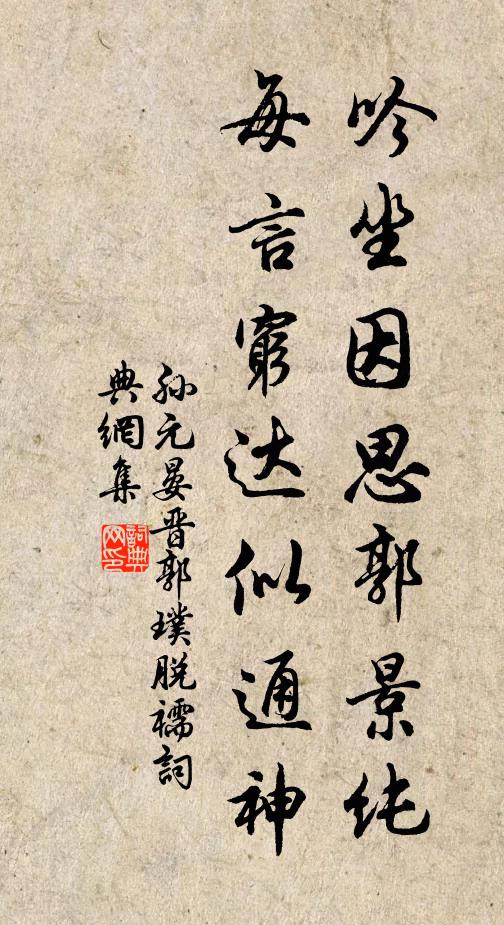 吟坐因思郭景纯
每言窮达似通神
孙元晏晋郭璞脱襦詞
典網集
詞典
网印